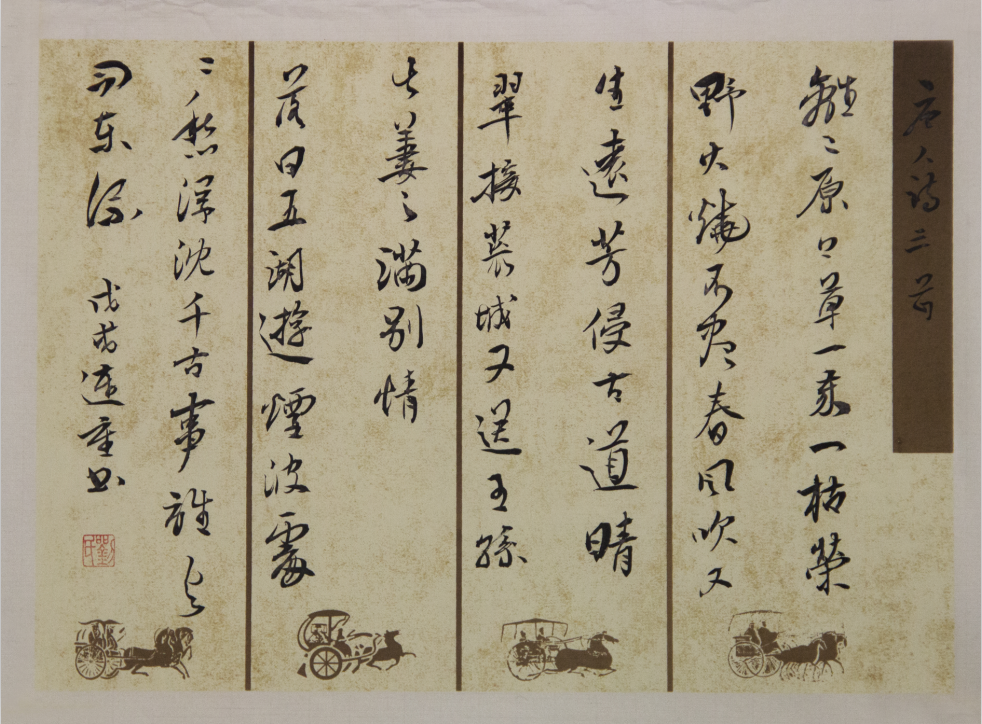 唐人詩三首
離〻原上草一歲一枯榮
野火燒不盡春風吹又
生遠芳侵古道晴
翠接荒城又送王孫
去萋〻滿別情
落日五湖遊煙波處
〻愁浮沈千古事誰與
問東流 戊戌蓮书
劉氏